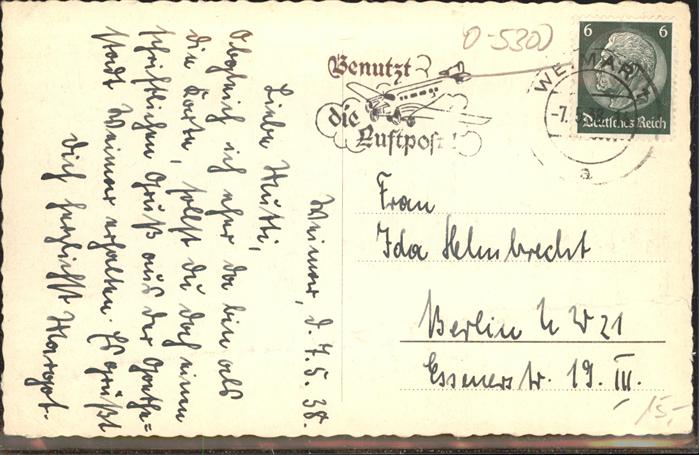 Weimar, d. 7.5.38.
Liebe Mutti,
Obgleich ich eher da bin als
die Karte, sollst du doch einen
schriftlichen Gruß aus der Goethe=
stadt Weimar erhalten. Es grüßt
dich herzlichst Margot.
0-5300
Benutzt
die
Luftpost!
WEIMAR
-7.
a
6 6
Deutsches Reich
Frau
Ida Helmbrecht
Berlin NW 21
Essenerstr. 19. III.
15,-